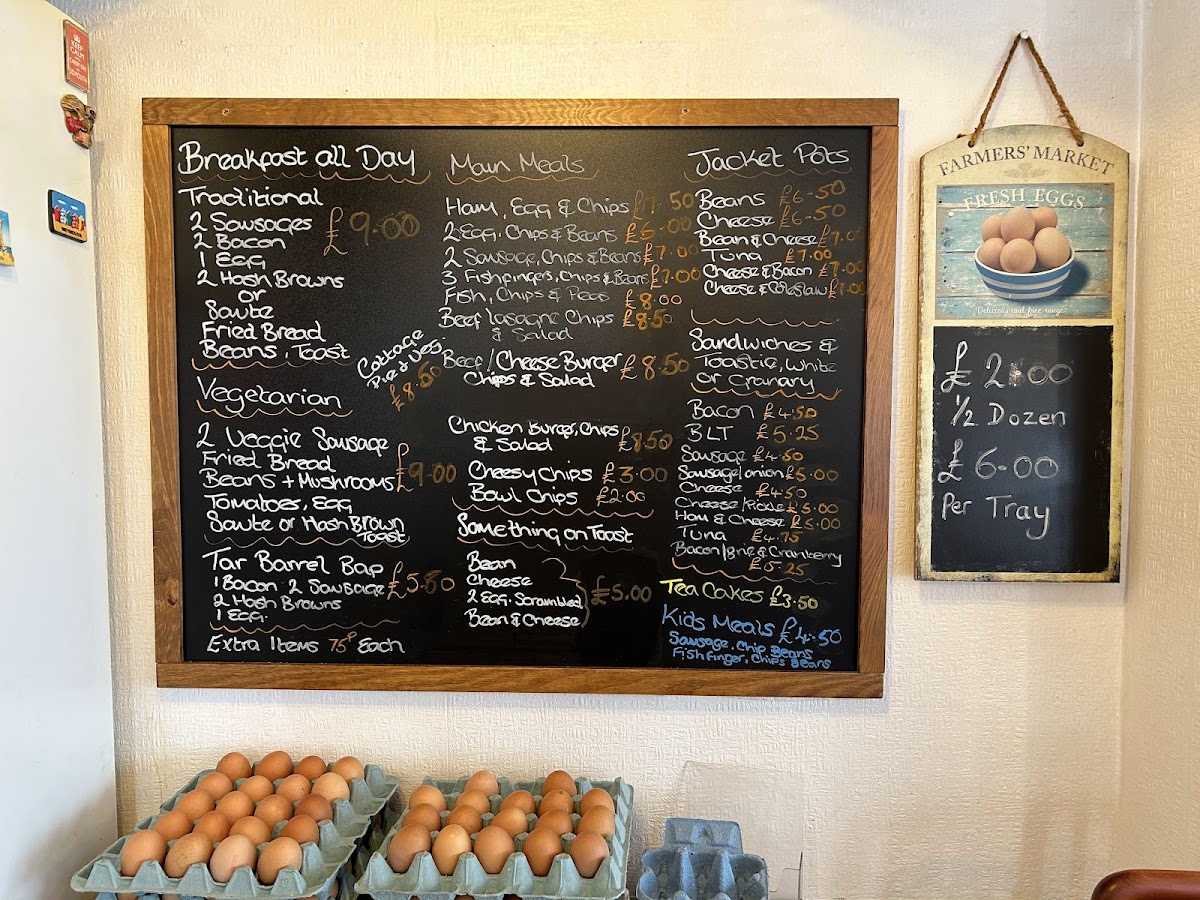 KEEP
CALM
Breakfast all Day
Traditional
2 Sausages £9.00
2 Bacon
1 Egg
2 Hash Browns
or
Saute
Fried Bread
Beans, Toast
Vegetarian
2 Veggie Sausage
Fried Bread
Beans + Mushrooms £9.00
Tomatoes, Egg
Saute or Hash Brown
Toast
Tar Barrel Bap
1 Bacon 2 Sausage £5.80
2 Hash Browns
1 Egg.
Extra Items 75P Each
Cottage
Pie & Veg.
£8.50
Main Meals
Ham, Egg & Chips £7.50
2 Egg. Chips & Beans £6.00
2 Sausage, Chips & Beans £7.00
3 Fishfingers, Chips & Beans £7.00
Fish, Chips & Peas £8.00
Beef lasagne Chips £8.50
& Salad
Beef/Cheese Burger £8.50
Chips & Salad
Chicken Burger, Chips £8.50
& Salad
Cheesy Chips £3.00
Bowl Chips £2.00
Something on Toast
Bean
Cheese
2 Egg. Scrambled £5.00
Bean & Cheese
Jacket Pots
Beans £6-50
Cheese £6-50
Bean & Cheese £7.00
Tuna £7.00
Cheese & Bacon £7.00
Cheese & Coleslaw £7.00
Sandwiches &
Toastie, White
or Granary
Bacon £4.50
BLT £5.25
Sausage £4.50
Sausage/onion £5.00
Cheese £4.50
Cheese/Pickle £5.00
Ham & Cheese £5.00
Tuna £4.75
Bacon/Brie & Cranberry
£5.25
Tea Cakes £3.50
Kids Meals £4.50
Sausage, Chip Beans
Fishfinger, Chips Beans
FARMERS' MARKET
FRESH EGGS
Delicious and free range!
£2.00
1/2 Dozen
£6-00
Per Tray